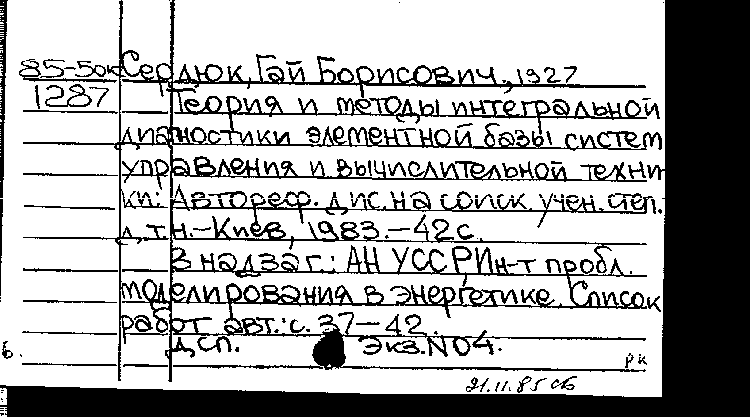 85-5ок Сердюк, Гай Борисович, 1927
1287 Теория и методы интегральной
диагностики элементной базы систем
управления и вычислительной техни-
ки: Автореф. дис. на соиск. учен. степ.
д.т.н.-Киев, 1983.-42с.
В надзаг.: АН УССР, Ин-т пробл.
моделирования в энергетике. Список
работ авт.: с. 37-42.
Б. дсп. Экз.N04.
РК
21.11.85 СБ